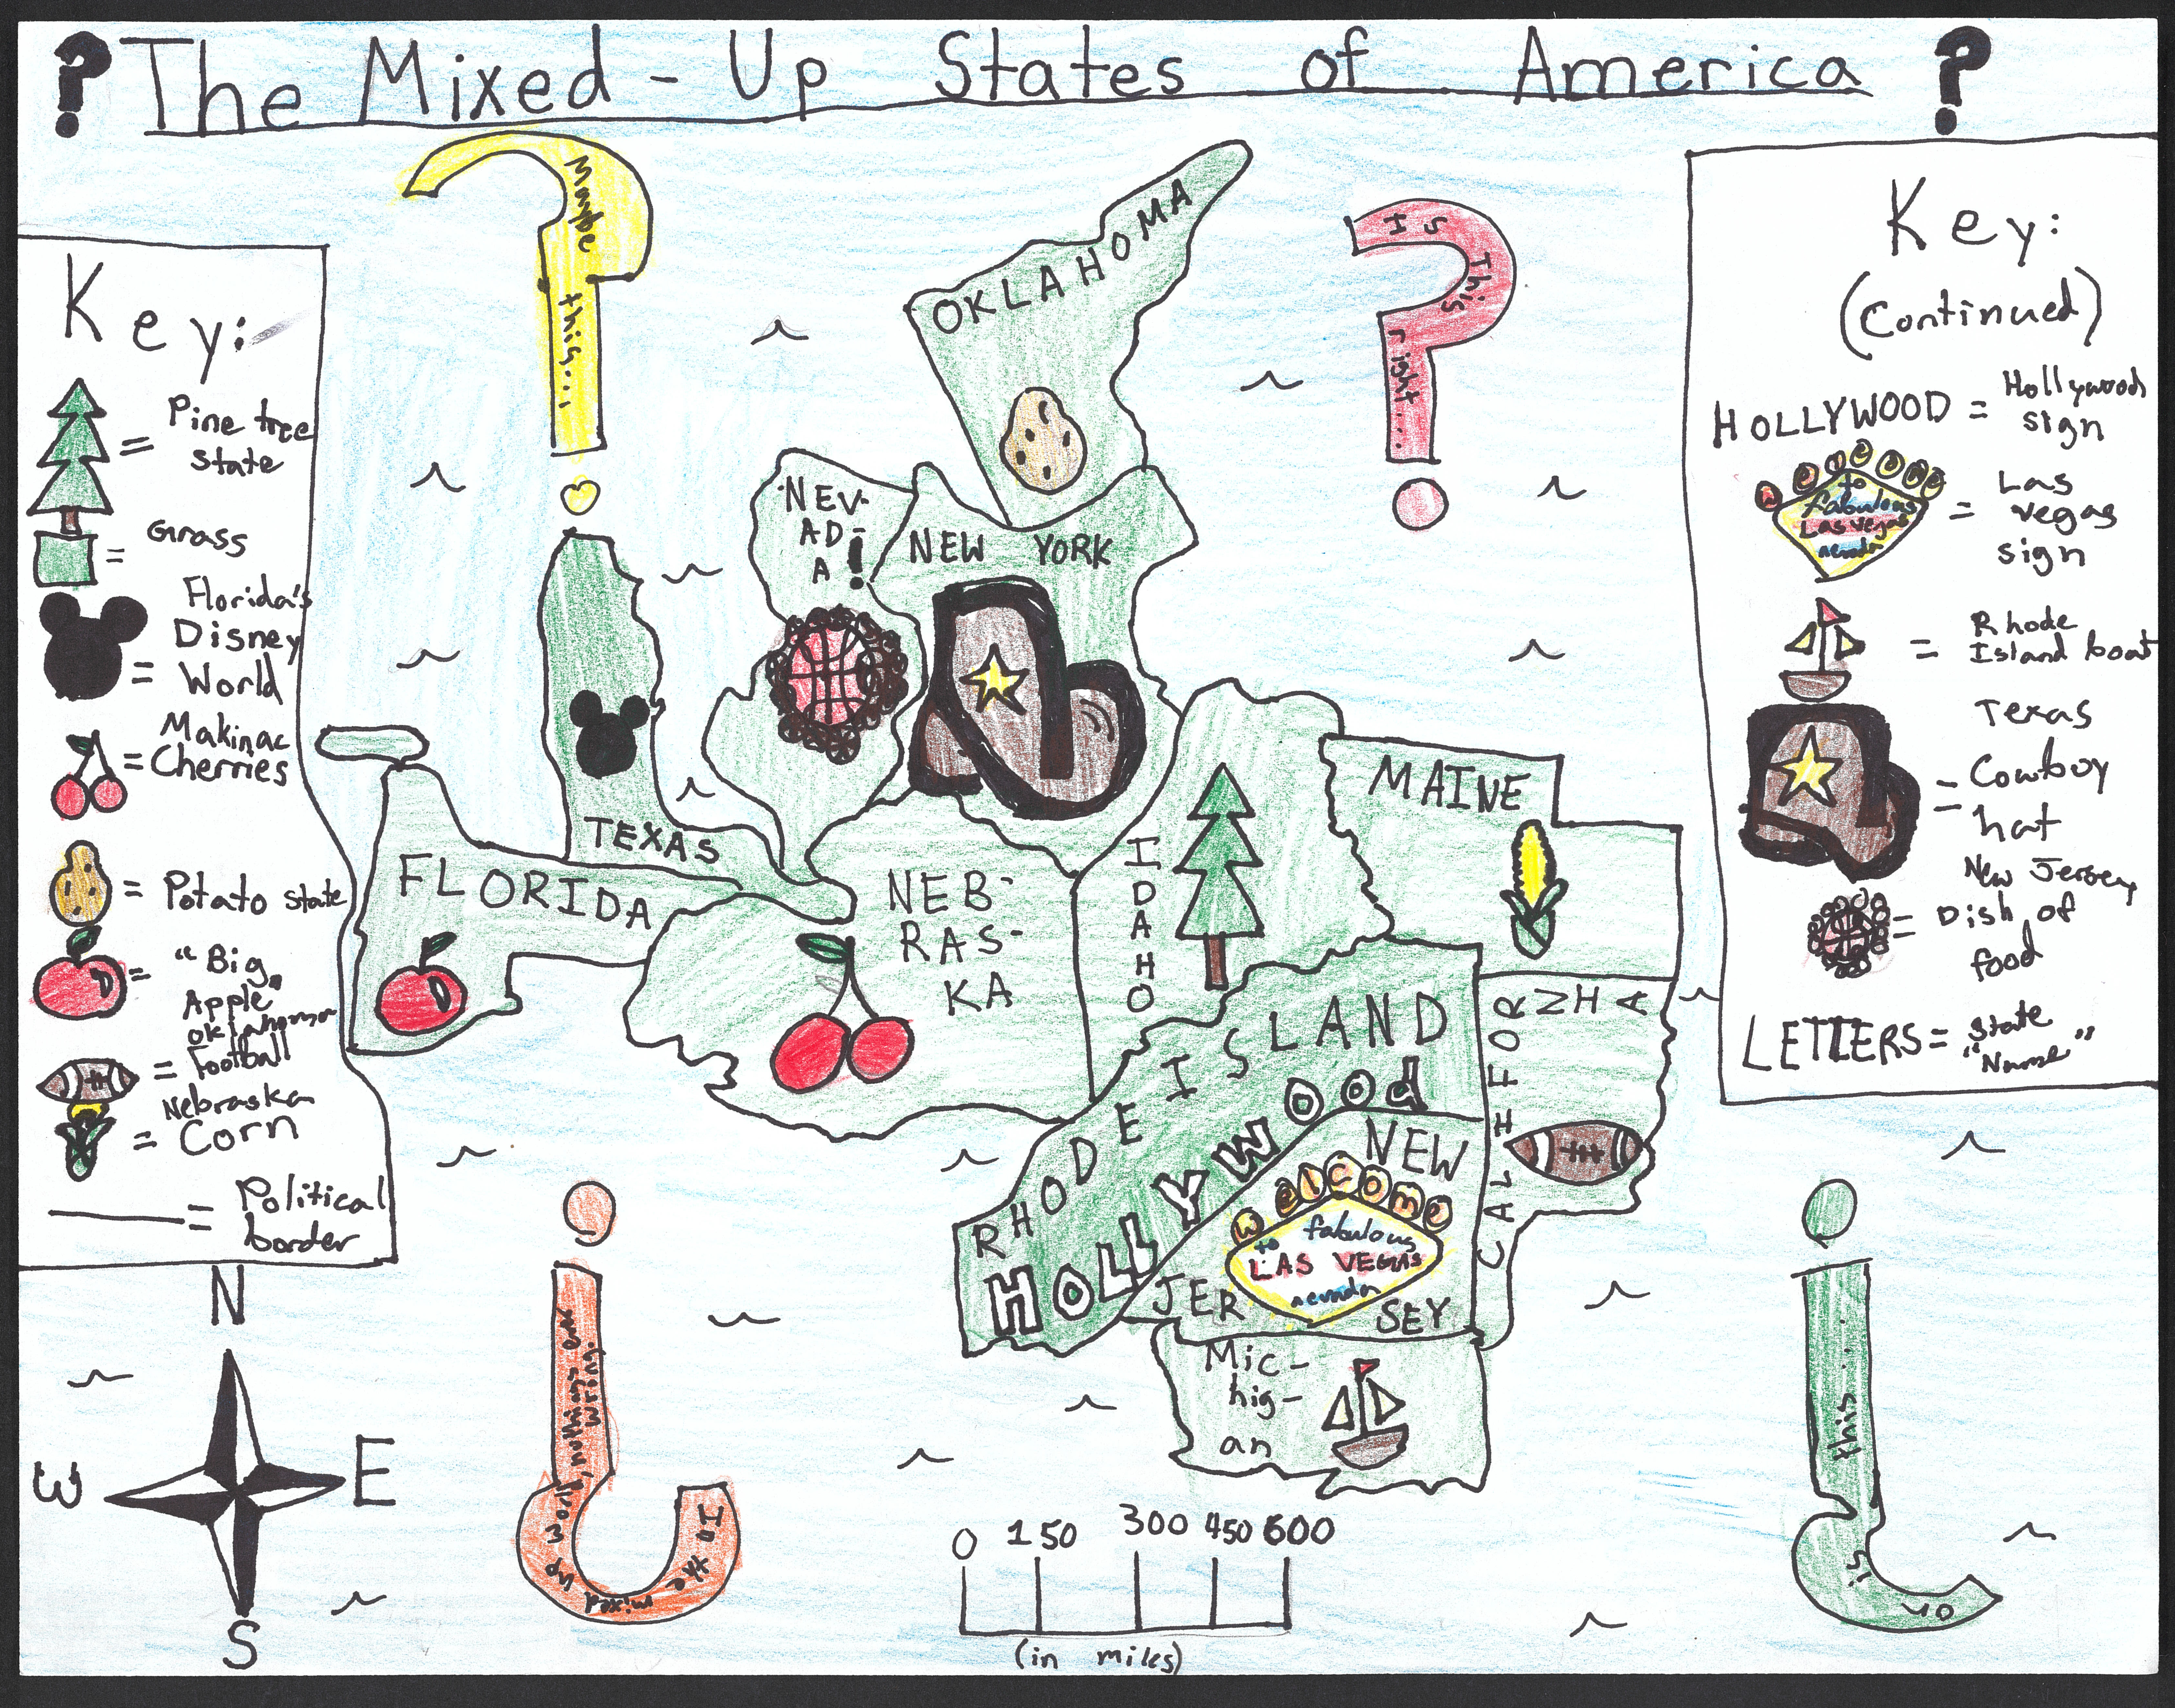 ? The Mixed-Up States of America ?
Key:
= Pine tree
state
= Grass
= Florida's
Disney
World
= Makinac
Cherries
= Potato state
= "Big
Apple"
= Oklahoma
Football
= Nebraska
Corn
= Political
border
N
W E
S
Maybe
this...
Is This
right...
OKLAHOMA
NEV-
AD-
A!
NEW YORK
TEXAS
FLORIDA
NEB-
RAS-
KA
IDAHO
MAINE
RHODE ISLAND
HOLLYWOOd
CALIFORNIA
NEW
JERSEY
welcome
to fabulous
LAS VEGAS
nevada
Mic-
hig-
an
In the mixed up world, nothings ever
wrong.
Or is this...
0 150 300 450 600
(in miles)
Key:
(Continued)
HOLLYWOOD = Hollywood
sign
welcome
to
fabulous
Las Vegas
nevada
= Las
Vegas
sign
= Rhode
Island boat
= Texas
Cowboy
hat
= New Jersey
Dish of
food
LETTERS = State
"Name"